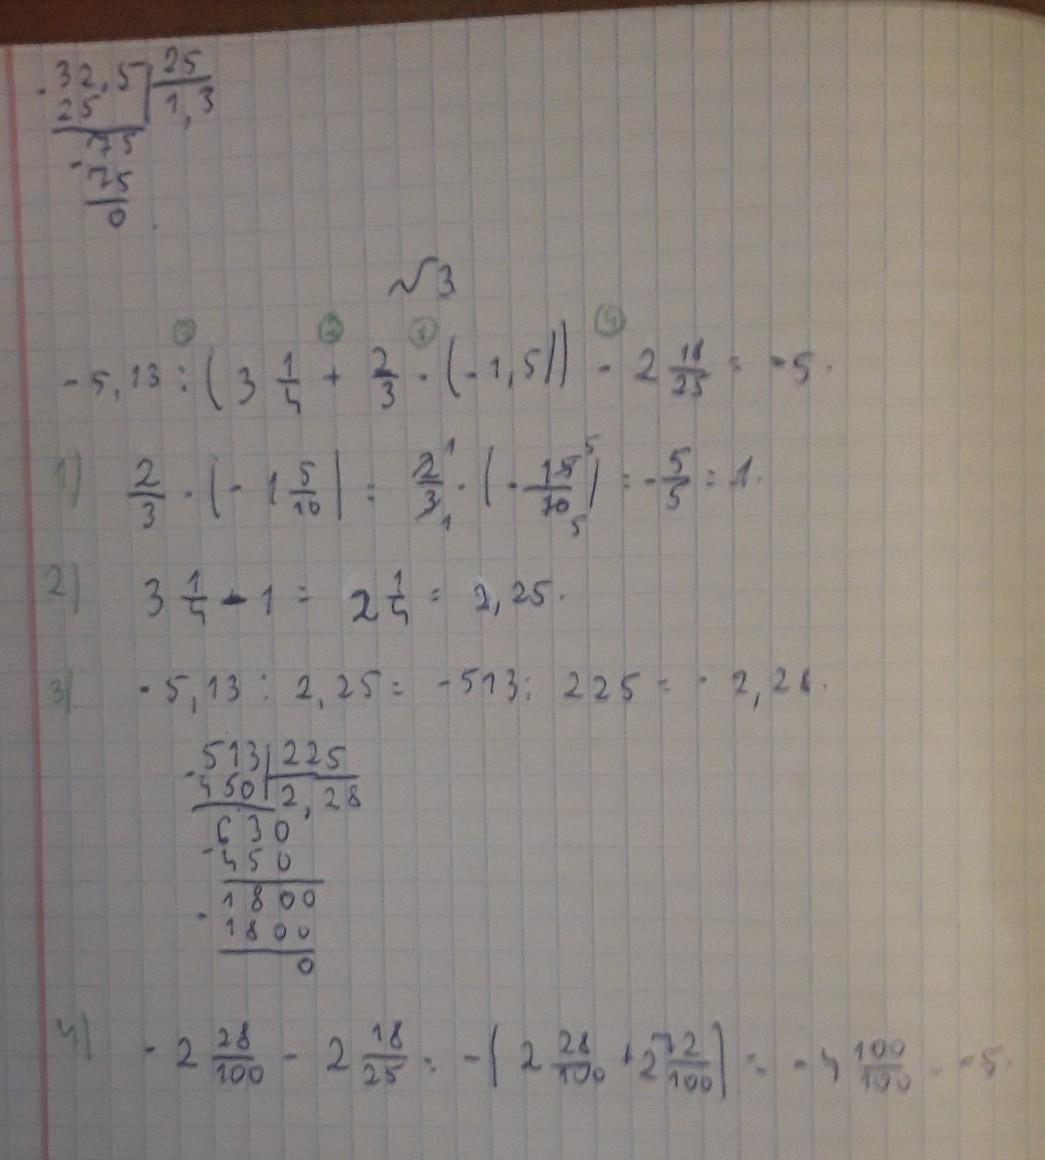 - 32,5 | 25
25 | 1,3
- 75
75
0
√3
③ ② ① ④
- 5,13 : (3 1/4 + 2/3 · (-1,5)) - 2 18/25 = -5.
1) 2/3 · (-1 5/10) = 2/3 · (-15/10) = -5/5 = 1.
2) 3 1/4 - 1 = 2 1/4 = 2,25.
3) - 5,13 : 2,25 = -513 : 225 = - 2,28.
- 513 | 225
450 | 2,28
- 630
450
- 1800
1800
0
4) - 2 28/100 - 2 18/25 = -(2 28/100 + 2 72/100) = -4 100/100 = -5.